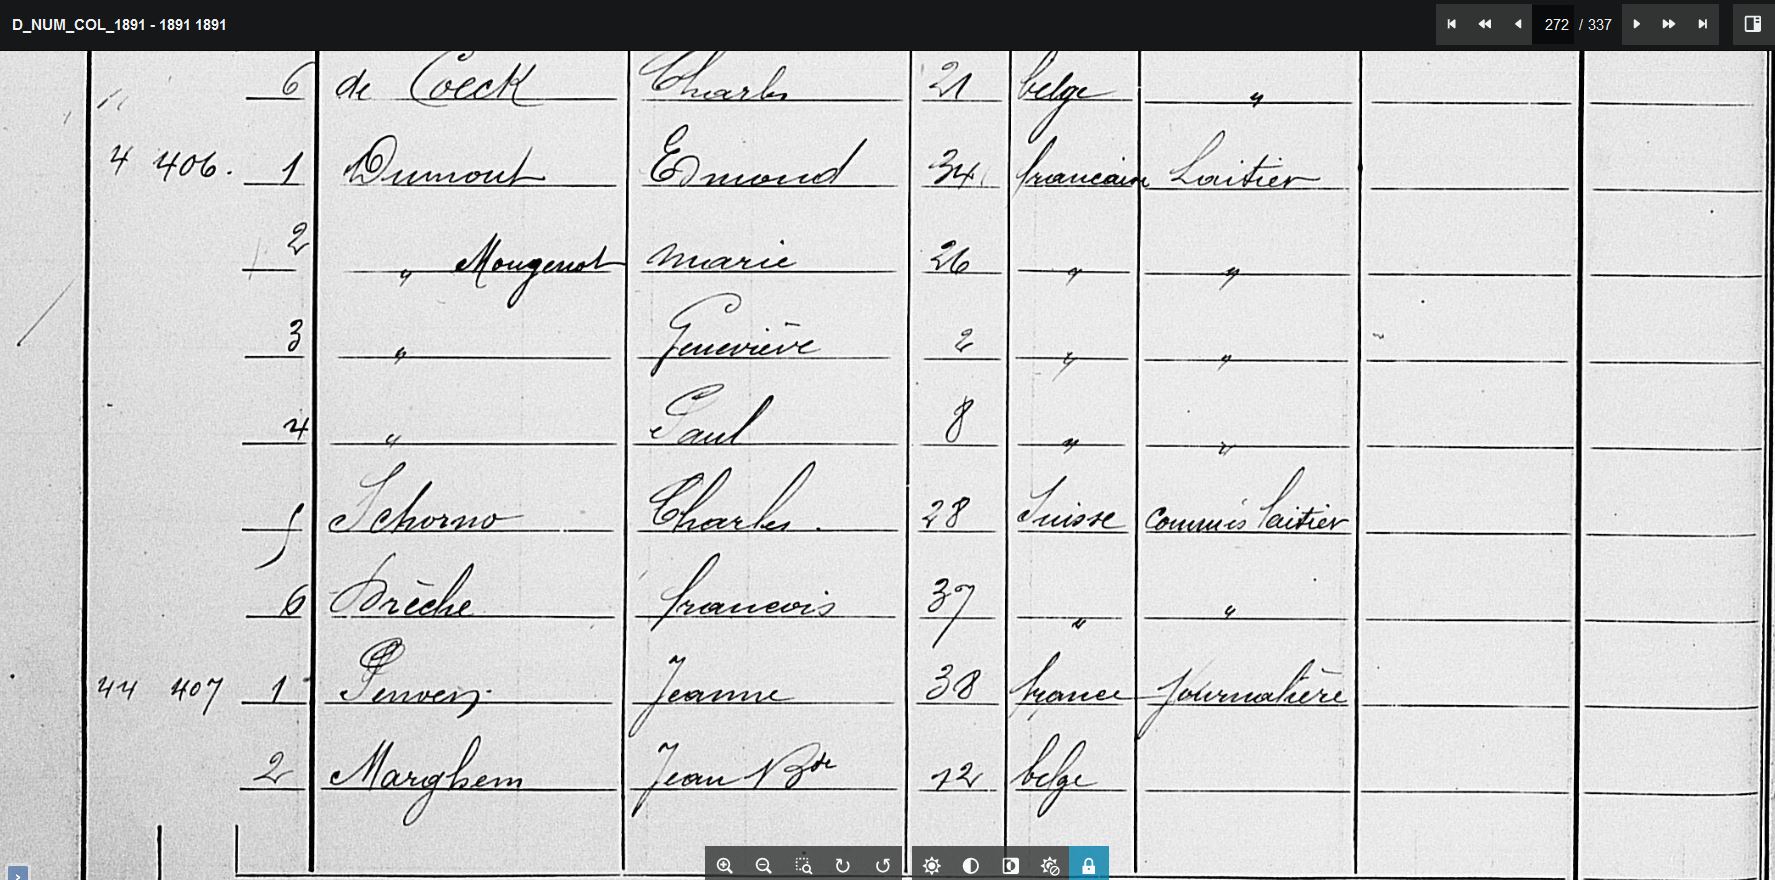 D_NUM_COL_1891 - 1891 1891 272 / 337
6 de Coeck Charles 21 belge "
4 406. 1 Dumont Edmond 34 francaise Laitier
2 " Mougenot Marie 26 " "
3 " Geneviève 2 " "
4 " Paul 8 " "
5 Schorno Charles. 28 Suisse commis laitier
6 Drèche francois 37 " "
44 407 1 Jeanne 38 france Journalière
2 Marghem Jean Bte 12 belge